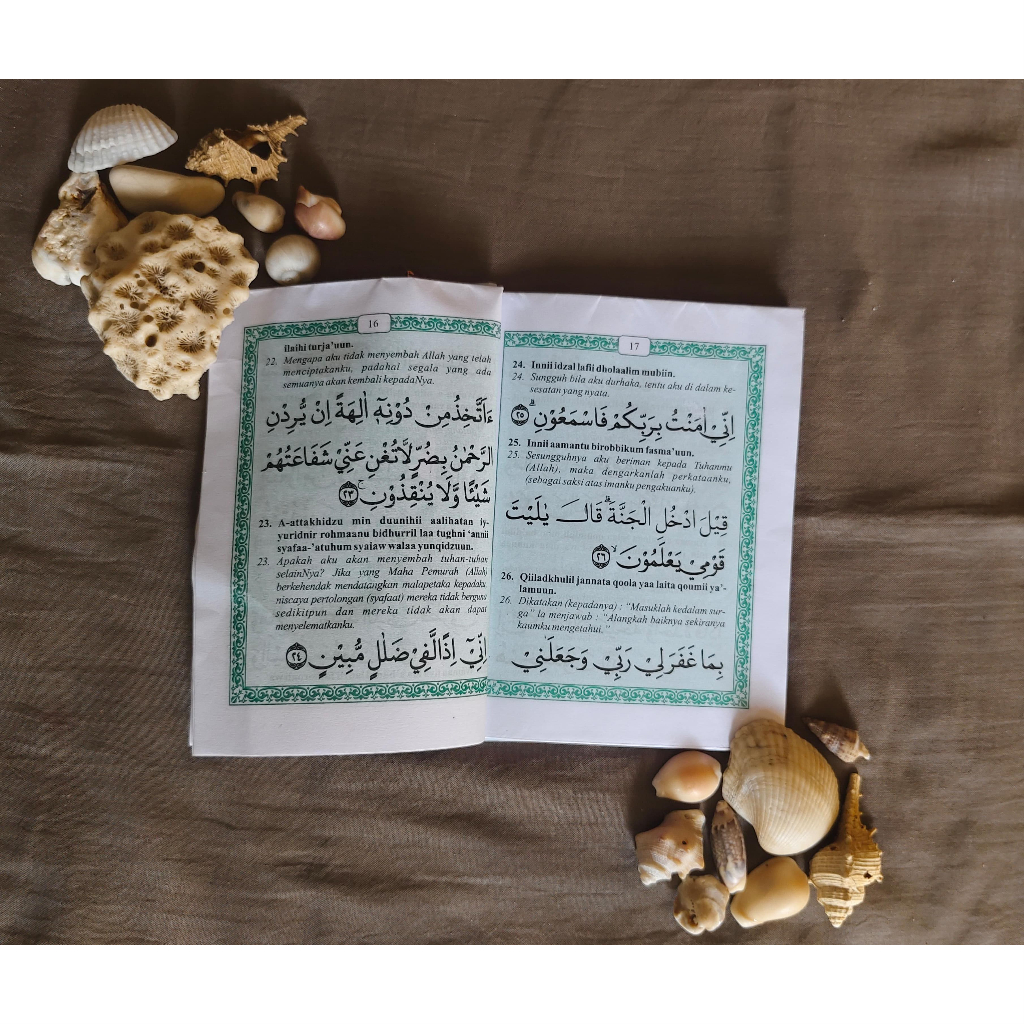 16
ilaihi turja'uun.
22. Mengapa aku tidak menyembah Allah yang telah
menciptakanku, padahal segala yang ada
semuanya akan kembali kepadaNya.
ءَاَتَّخِذُ مِنْ دُوْنِهٖٓ اٰلِهَةً اِنْ يُّرِدْنِ
الرَّحْمٰنُ بِضُرٍّ لَّا تُغْنِ عَنِّيْ شَفَاعَتُهُمْ
شَيْـًٔا وَّلَا يُنْقِذُوْنِ ۚ ٢٣
23. A-attakhidzu min duunihii aalihatan iy-
yuridnir rohmaanu bidhurril laa tughni 'annii
syafaa-'atuhum syaiaw walaa yunqidzuun.
23. Apakah aku akan menyembah tuhan-tuhan
selainNya? Jika yang Maha Pemurah (Allah)
berkehendak mendatangkan malapetaka kepadaku,
niscaya pertolongan (syafaat) mereka tidak berguna
sedikitpun dan mereka tidak akan dapat
menyelematkanku.
اِنِّيْٓ اِذًا لَّفِيْ ضَلٰلٍ مُّبِيْنٍ ٢٤
17
24. Innii idzal lafii dholaalim mubiin.
24. Sungguh bila aku darhaka, tentu aku di dalam ke-
sesatan yang nyata.
اِنِّيْٓ اٰمَنْتُ بِرَبِّكُمْ فَاسْمَعُوْنِ ۗ ٢٥
25. Innii aamantu birobbikum fasma'uun.
25. Sesungguhnya aku beriman kepada Tuhanmu
(Allah), maka dengarkanlah perkataanku,
(sebagai saksi atas imanku pengakuanku).
قِيْلَ ادْخُلِ الْجَنَّةَ ۗ قَالَ يٰلَيْتَ
قَوْمِيْ يَعْلَمُوْنَ ۙ ٢٦
26. Qiiladkhulil jannata qoola yaa laita qoumii ya'-
lamuun.
26. Dikatakan (kepadanya) : "Masuklah kedalam sur-
ga" Ia menjawab : "Alangkah baiknya sekiranya
kaumku mengetahui."
بِمَا غَفَرَ لِيْ رَبِّيْ وَجَعَلَنِيْ